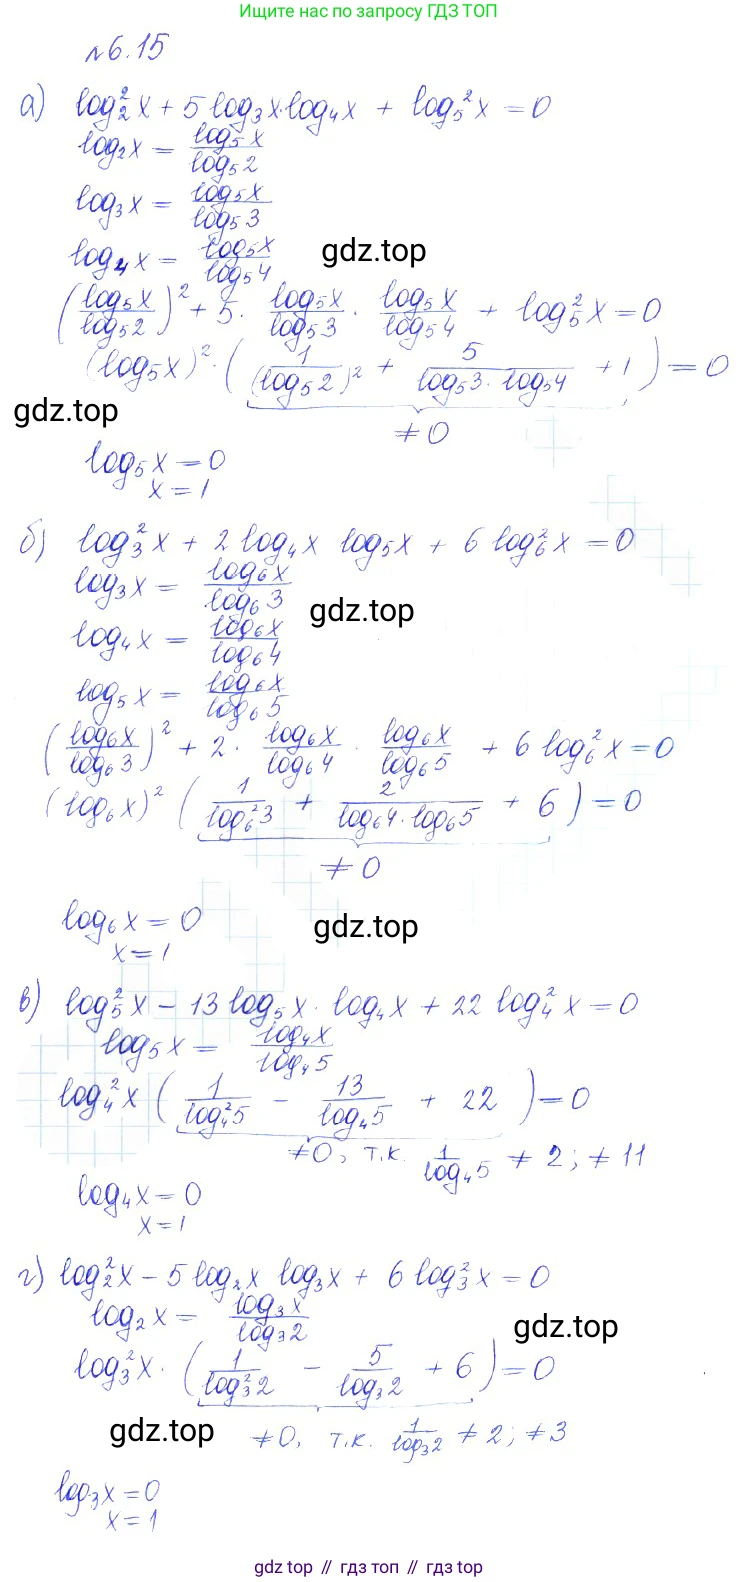 Ищите нас по запросу ГДЗ ТОП
№6.15
а) log₂²x + 5 log₃x·log₄x + log₅²x = 0
log₂x = log₅x / log₅2
log₃x = log₅x / log₅3
log₄x = log₅x / log₅4
gdz.top
(log₅x / log₅2)² + 5 · log₅x / log₅3 · log₅x / log₅4 + log₅²x = 0
(log₅x)² · (1 / (log₅2)² + 5 / (log₅3 · log₅4) + 1) = 0
gdz.top
≠ 0
log₅x = 0
x = 1
б) log₃²x + 2 log₄x log₅x + 6 log₆²x = 0
log₃x = log₆x / log₆3
gdz.top
log₄x = log₆x / log₆4
log₅x = log₆x / log₆5
(log₆x / log₆3)² + 2 · log₆x / log₆4 · log₆x / log₆5 + 6 log₆²x = 0
(log₆x)² (1 / log₆²3 + 2 / (log₆4 · log₆5) + 6) = 0
≠ 0
log₆x = 0
gdz.top
x = 1
в) log₅²x − 13 log₅x · log₄x + 22 log₄²x = 0
log₅x = log₄x / log₄5
log₄²x (1 / log₄²5 − 13 / log₄5 + 22) = 0
≠0, т.к. 1 / log₄5 ≠ 2; ≠ 11
log₄x = 0
x = 1
г) log₂²x − 5 log₂x log₃x + 6 log₃²x = 0
log₂x = log₃x / log₃2
gdz.top
log₃²x · (1 / log₃²2 − 5 / log₃2 + 6) = 0
gdz.top
≠0, т.к. 1 / log₃2 ≠ 2; ≠ 3
log₃x = 0
x = 1
gdz top // гдз топ // гдз.топ